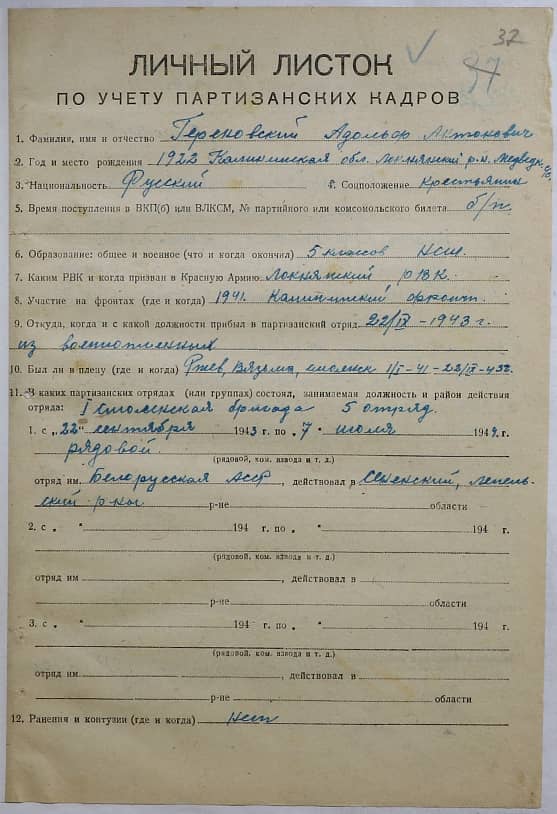 32
37
ЛИЧНЫЙ ЛИСТОК
ПО УЧЕТУ ПАРТИЗАНСКИХ КАДРОВ
1. Фамилия, имя и отчество Тереховский Адольф Антонович
2. Год и место рождения 1922 Калининская обл. Локнянский р-н.
3. Национальность Русский 4. Соцположение крестьянин
5. Время поступления в ВКП(б) или ВЛКСМ, № партийного или комсомольского билета б/п.
6. Образование: общее и военное (что и когда окончил) 5 классов НСШ.
7. Каким РВК и когда призван в Красную Армию Локнянский РВК.
8. Участие на фронтах (где и когда) 1941. Калининский фронт.
9. Откуда, когда и с какой должности прибыл в партизанский отряд 22/IX-1943 г.
из военнопленных
10. Был ли в плену (где и когда) Ржев, Вязьма, Смоленск
11. В каких партизанских отрядах (или группах) состоял, занимаемая должность и район действия
отряда: I Смоленская бригада 5 отряд.
1. с „22" сентября 1943 г. по „7" июля 1944 г.
рядовой.
(рядовой, ком. взвода и т. д.)
отряд им Белорусская ССР, действовал в Сенненский, Лепель-
ский р-ны р-не области
2. с „ " 194 г. по „ " 194 г.
(рядовой, ком. взвода и т. д.)
отряд им , действовал в
р-не области
3. с „ " 194 г. по „ " 194 г.
(рядовой, ком. взвода и т. д.)
отряд им , действовал в
р-не области
12. Ранения и контузии (где и когда) нет